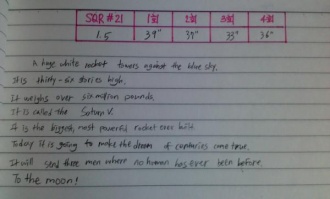 SQR #21 1회 2회 3회 4회
1.5 39" 37" 33" 36"
A huge white rocket towers against the blue sky.
It is thirty-six stories high.
It weighs over six million pounds.
It is called the Saturn V.
It is the biggest, most powerful rocket ever built.
Today it is going to make the dream of centuries come true.
It will send three men where no human has ever been before.
To the moon!